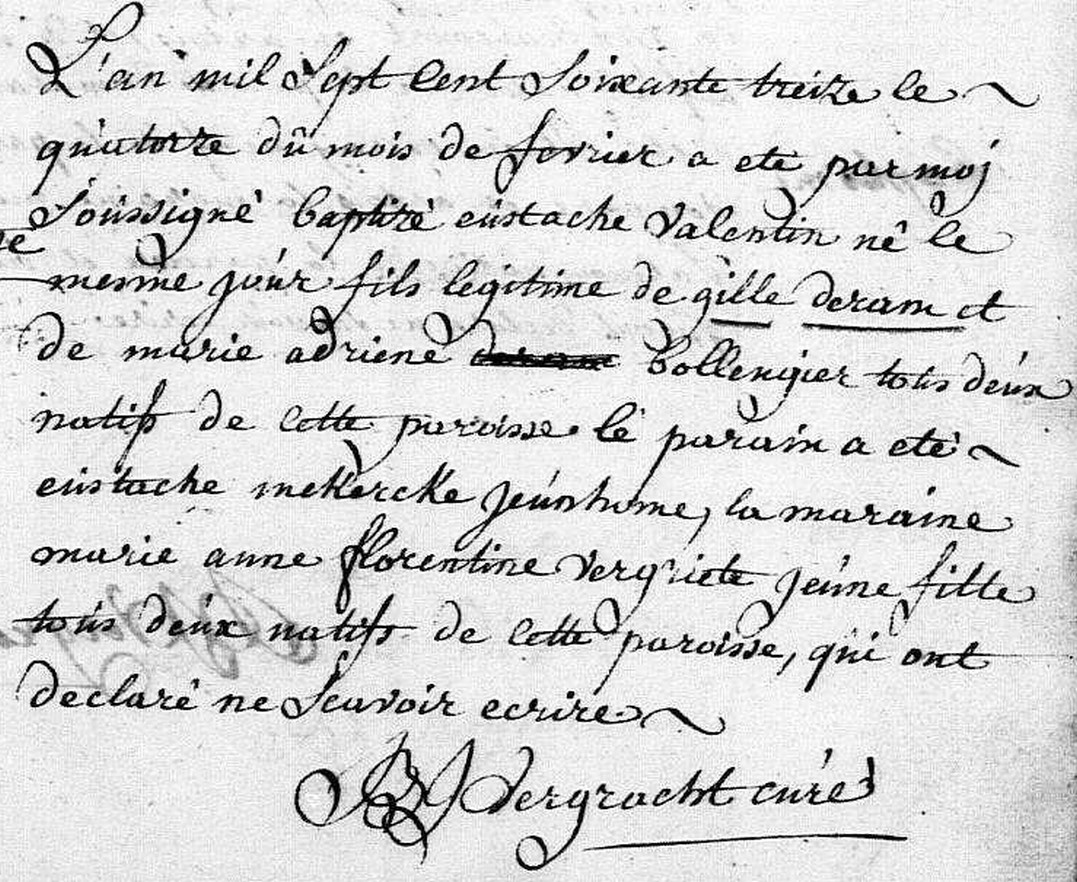 L'an mil Sept Cent Soixante treize le
quatorze dû mois de fevrier a eté par moj
Soussigné baptizé eustache Valentin né le
mesme joúr fils legitime de gille deram et
de marie adriene bollengier toús deúx
natifs de cette paroisse le parain a eté
eustache meKercKe jeúnhome, la maraine
marie anne florentine Vergriete jeúne fille
toús deúx natifs de cette paroisse, qúi ont
declaré ne Scavoir ecrire
Vergracht cúré